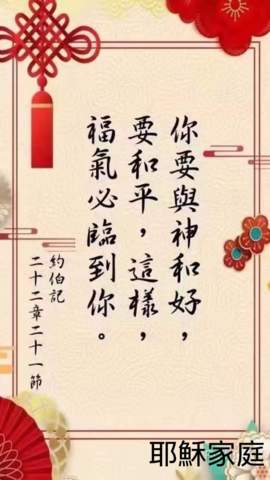 你要與神和好，
要和平，這樣，
福氣必臨到你。
約伯記
二十二章二十一節
耶穌家庭